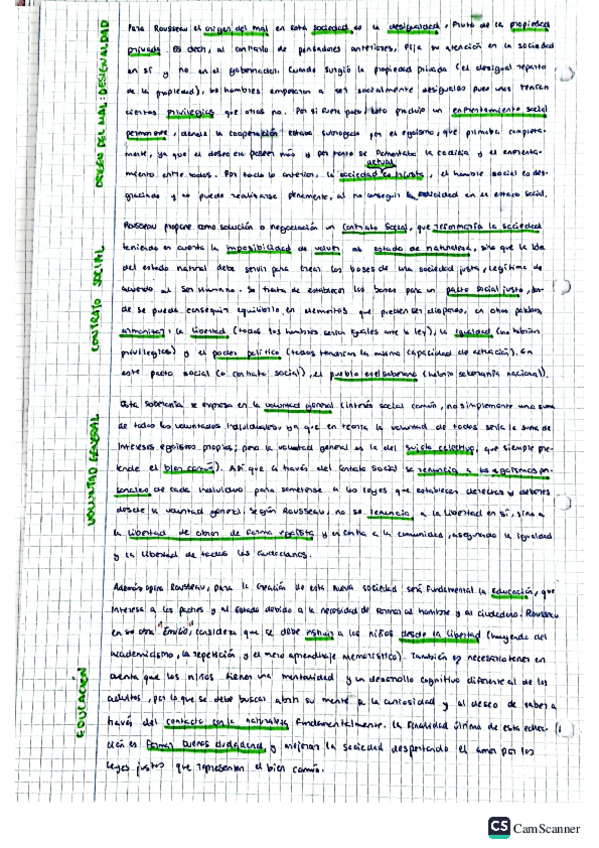 ORIGEN DEL MAL: DESIGUALDAD
Para Rousseau el origen del mal en esta sociedad es la desigualdad, fruto de la propiedad
privada. Es decir, al contrario de pensadores anteriores, fija su atención en la sociedad
en sí y no en el gobernador. Cuando surgió la propiedad privada (el desigual reparto
de la propiedad), los hombres empezaron a ser socialmente desiguales pues unos tenían
ciertos privilegios que otros no. Por si fuera poco, esto produjo un enfrentamiento social
permanente, donde la cooperación estaba subrogada por el egoísmo, que primaba
mente, ya que el deseo era poseer más y por tanto se fomentaba la codicia y el enfrenta-
miento entre todos. Por todo lo anterior, la sociedad actual es injusta, el hombre social es des-
graciado y no puede realizarse plenamente, al no conseguir la felicidad en el estado social.
CONTRATO SOCIAL
Rousseau propone como solución o negociación un Contrato Social, que reformaría la sociedad
teniendo en cuenta la imposibilidad de volver al estado de naturaleza, sino que la idea
del estado natural debe servir para crear las bases de una sociedad justa, legítima de
acuerdo al ser humano. Se trata de establecer las bases para un pacto social justo, don-
de se pueda conseguir equilibrio en elementos que pueden ser dispares, en otras palabras,
armonizar: la libertad (todos los hombres serían iguales ante la ley), la igualdad (no habrían
privilegios) y el poder político (todos tendrían la misma capacidad de actuación). En
este pacto social (o contrato social), el pueblo es el soberano (habría soberanía nacional).
VOLUNTAD GENERAL
Esta soberanía se expresa en la voluntad general (interés social común, no simplemente una suma
de todas las voluntades individuales, ya que en teoría la voluntad de todos sería la suma de
intereses egoístas propios; pero la voluntad general es la del sujeto colectivo, que siempre pre-
tende el bien común). Así que a través del Contrato Social se renuncia a los egoísmos per-
sonales de cada individuo para someterse a las leyes que establecen derechos y deberes
desde la voluntad general. Según Rousseau, no se renuncia a la libertad en sí, sino a
la libertad de obrar de forma egoísta y en contra a la comunidad, asegurando la igualdad
y la libertad de todos los ciudadanos.
EDUCACIÓN
Además opina Rousseau, para la creación de esta nueva sociedad será fundamental la educación, que
interesa a los padres y al estado debido a la necesidad de formar al hombre y al ciudadano. Rousseau
en su obra "Emilio", considera que se debe instruir a los niños desde la libertad (huyendo del
academicismo, la repetición y el mero aprendizaje memorístico). También es necesario tener en
cuenta que los niños tienen una mentalidad y un desarrollo cognitivo diferente al de los
adultos, por lo que se debe buscar abrir su mente a la curiosidad y al deseo de saber a
través del contacto con la naturaleza fundamentalmente. La finalidad última de esta educa-
ción es formar buenos ciudadanos y mejorar la sociedad despertando el amor por las
leyes justas que representan el bien común.
CS CamScanner